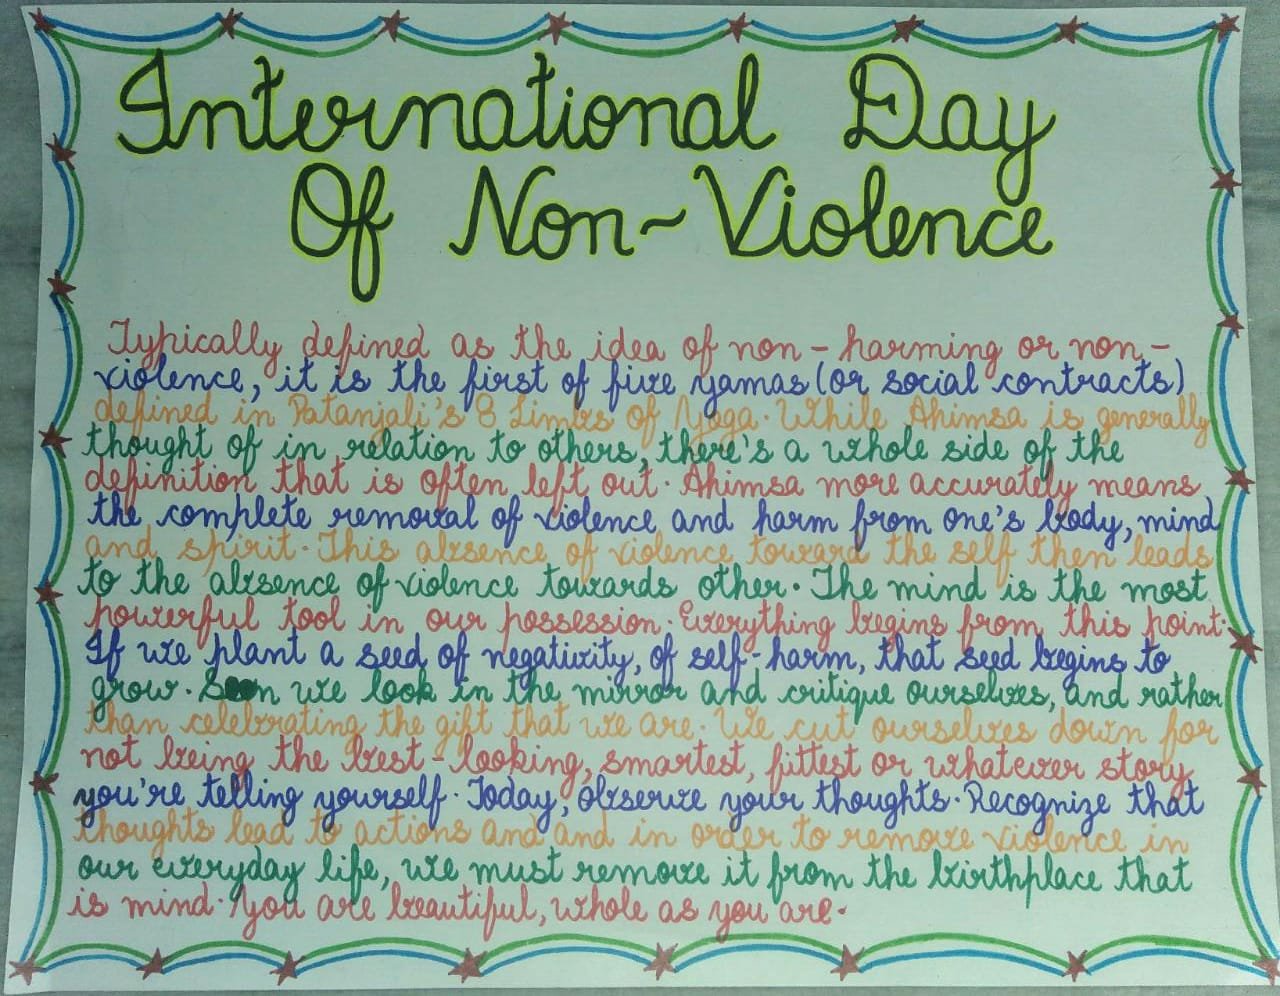 International Day
Of Non-Violence
Typically defined as the idea of non - harming or non -
violence, it is the first of five yamas (or social contracts)
defined in Patanjali's 8 Limbs of Yoga. While Ahimsa is generally
thought of in relation to others, there's a whole side of the
definition that is often left out. Ahimsa more accurately means
the complete removal of violence and harm from one's body, mind
and spirit. This absence of violence toward the self then leads
to the absence of violence towards other. The mind is the most
powerful tool in our possession. Everything begins from this point.
If we plant a seed of negativity, of self-harm, that seed begins to
grow. Soon we look in the mirror and critique ourselves, and rather
than celebrating the gift that we are. We cut ourselves down for
not being the best-looking, smartest, fittest or whatever story
you're telling yourself. Today, observe your thoughts. Recognize that
thoughts lead to actions and and in order to remove violence in
our everyday life, we must remove it from the birthplace that
is mind. You are beautiful, whole as you are.